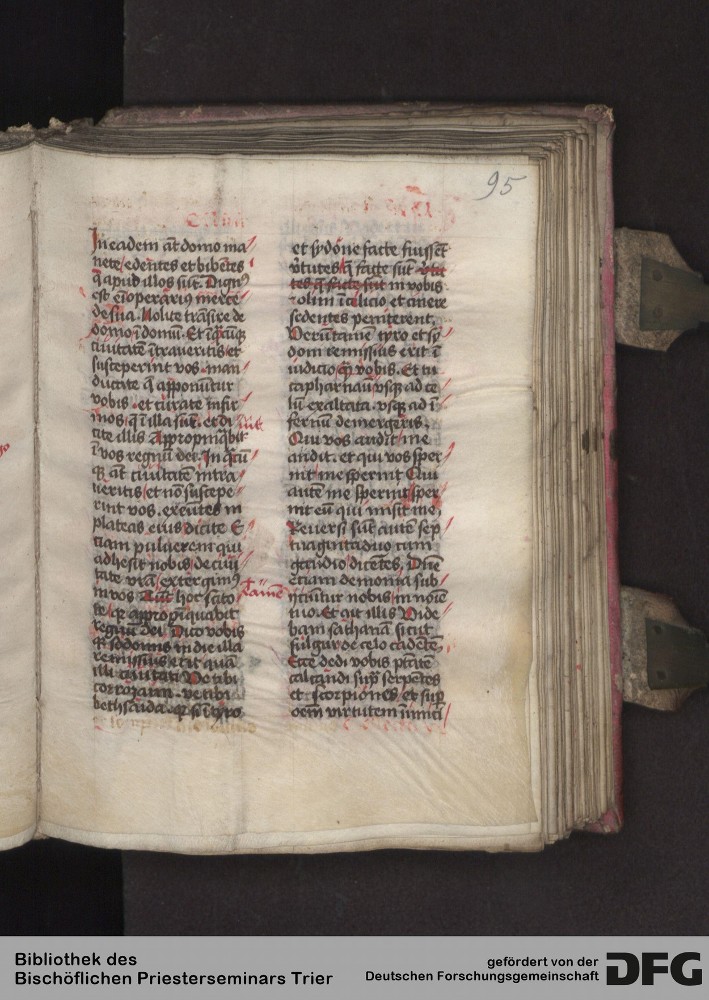 95
In eadem at̄ domo ma
nete edentes et bibētes
q̄ apud illos sūt. Dign9
est eī operarius merce
de sua. Nolite trāsire de
domo ī domū. Et ī q̄cūq;
ciuitatē ītraueritis et
susceperint vos. man
ducate q̄ apponūtur
vobis. et curate infir
mos, q̄ ī illa sūt. et di
cite illis Appropīq̄bit
ī vos regnū dei. In q̄cū
q; at̄ ciuitatē intra
ueritis et nō suscepe
rint vos. exeūtes in
plateas eius dicite E
tiam puluerem qui
adhesit nobis de ciui
tate vrā, extergim9
in vos. hoc scito
te, q; appropīquabit
regnū dei. Dico vobis
q; sodomis in die illa
remissius erit quā
illi ciuitati Ve tibi
corrozaim. ve tibi
bethsaida. q; si ī tyro
tamē
et sydōne facte fuissēt
v̄tutes, q̄ facte sūt v̄tu
tes q̄ facte sūt in vobis
olim ī cilicio et cinere
sedentes peniterent.
Verūtamē tyro et sy
doni remissius erit ī
iudicio, q̄ vobis. Et tu
capharnaū vsq; ad ce
lū exaltata. vsq; ad ī
fernū demergeris.
Qui vos audit, me
audit. et qui vos sper
nit, me spernit Qui
autē me spernit, sper
nit eū qui misit me,
Reuersi sūt autē sep
tuaginta duo cum
gaudio, dicētes, Dn̄e
etiam demonia sub
iiciūtur nobis, in noīe
tuo. Et ait illis Vide
bam sathanā sicut
fulgur de celo cadētē,
Ecce dedi vobis ptātē
calcandi sup serpētes
et scorpiones, et sup
oēm virtutem inimici
Bibliothek des
Bischöflichen Priesterseminars Trier
gefördert von der
Deutschen Forschungsgemeinschaft
DFG